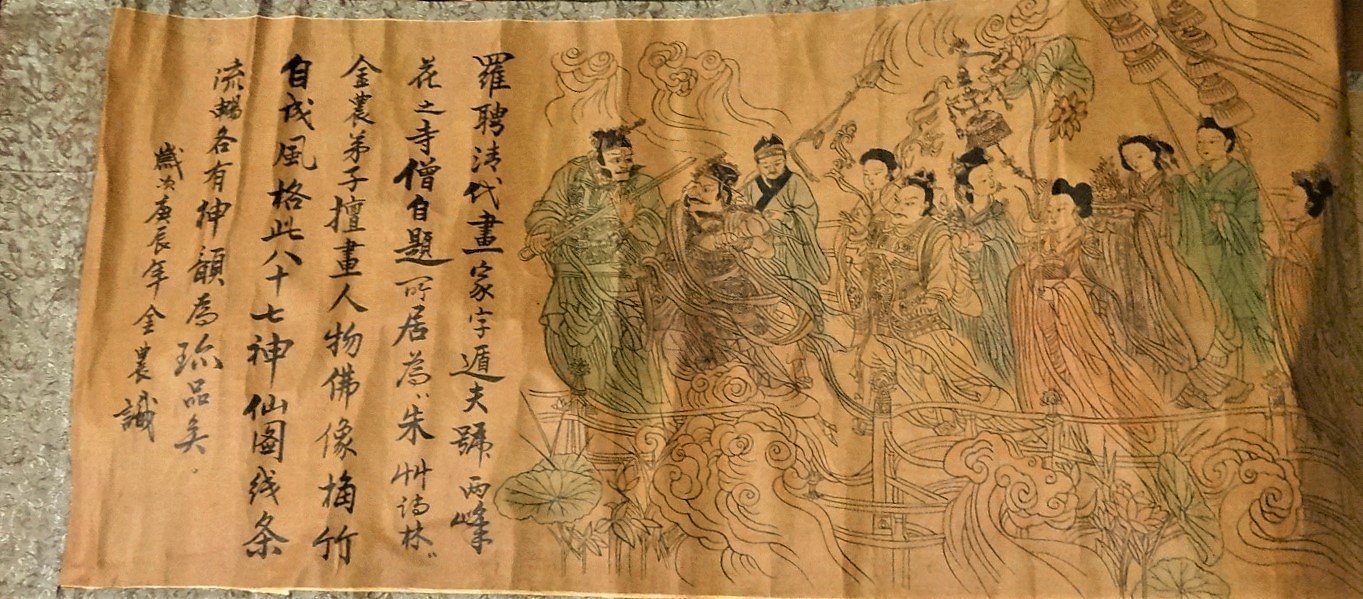 羅聘清代畫家字遁夫號兩峰
花之寺僧自題所居為“朱艸詩林”
金農弟子擅畫人物佛像梅竹
自成風格此八十七神仙圖线条
流暢各有神韻為珎品矣.
歲次庚辰年金農識